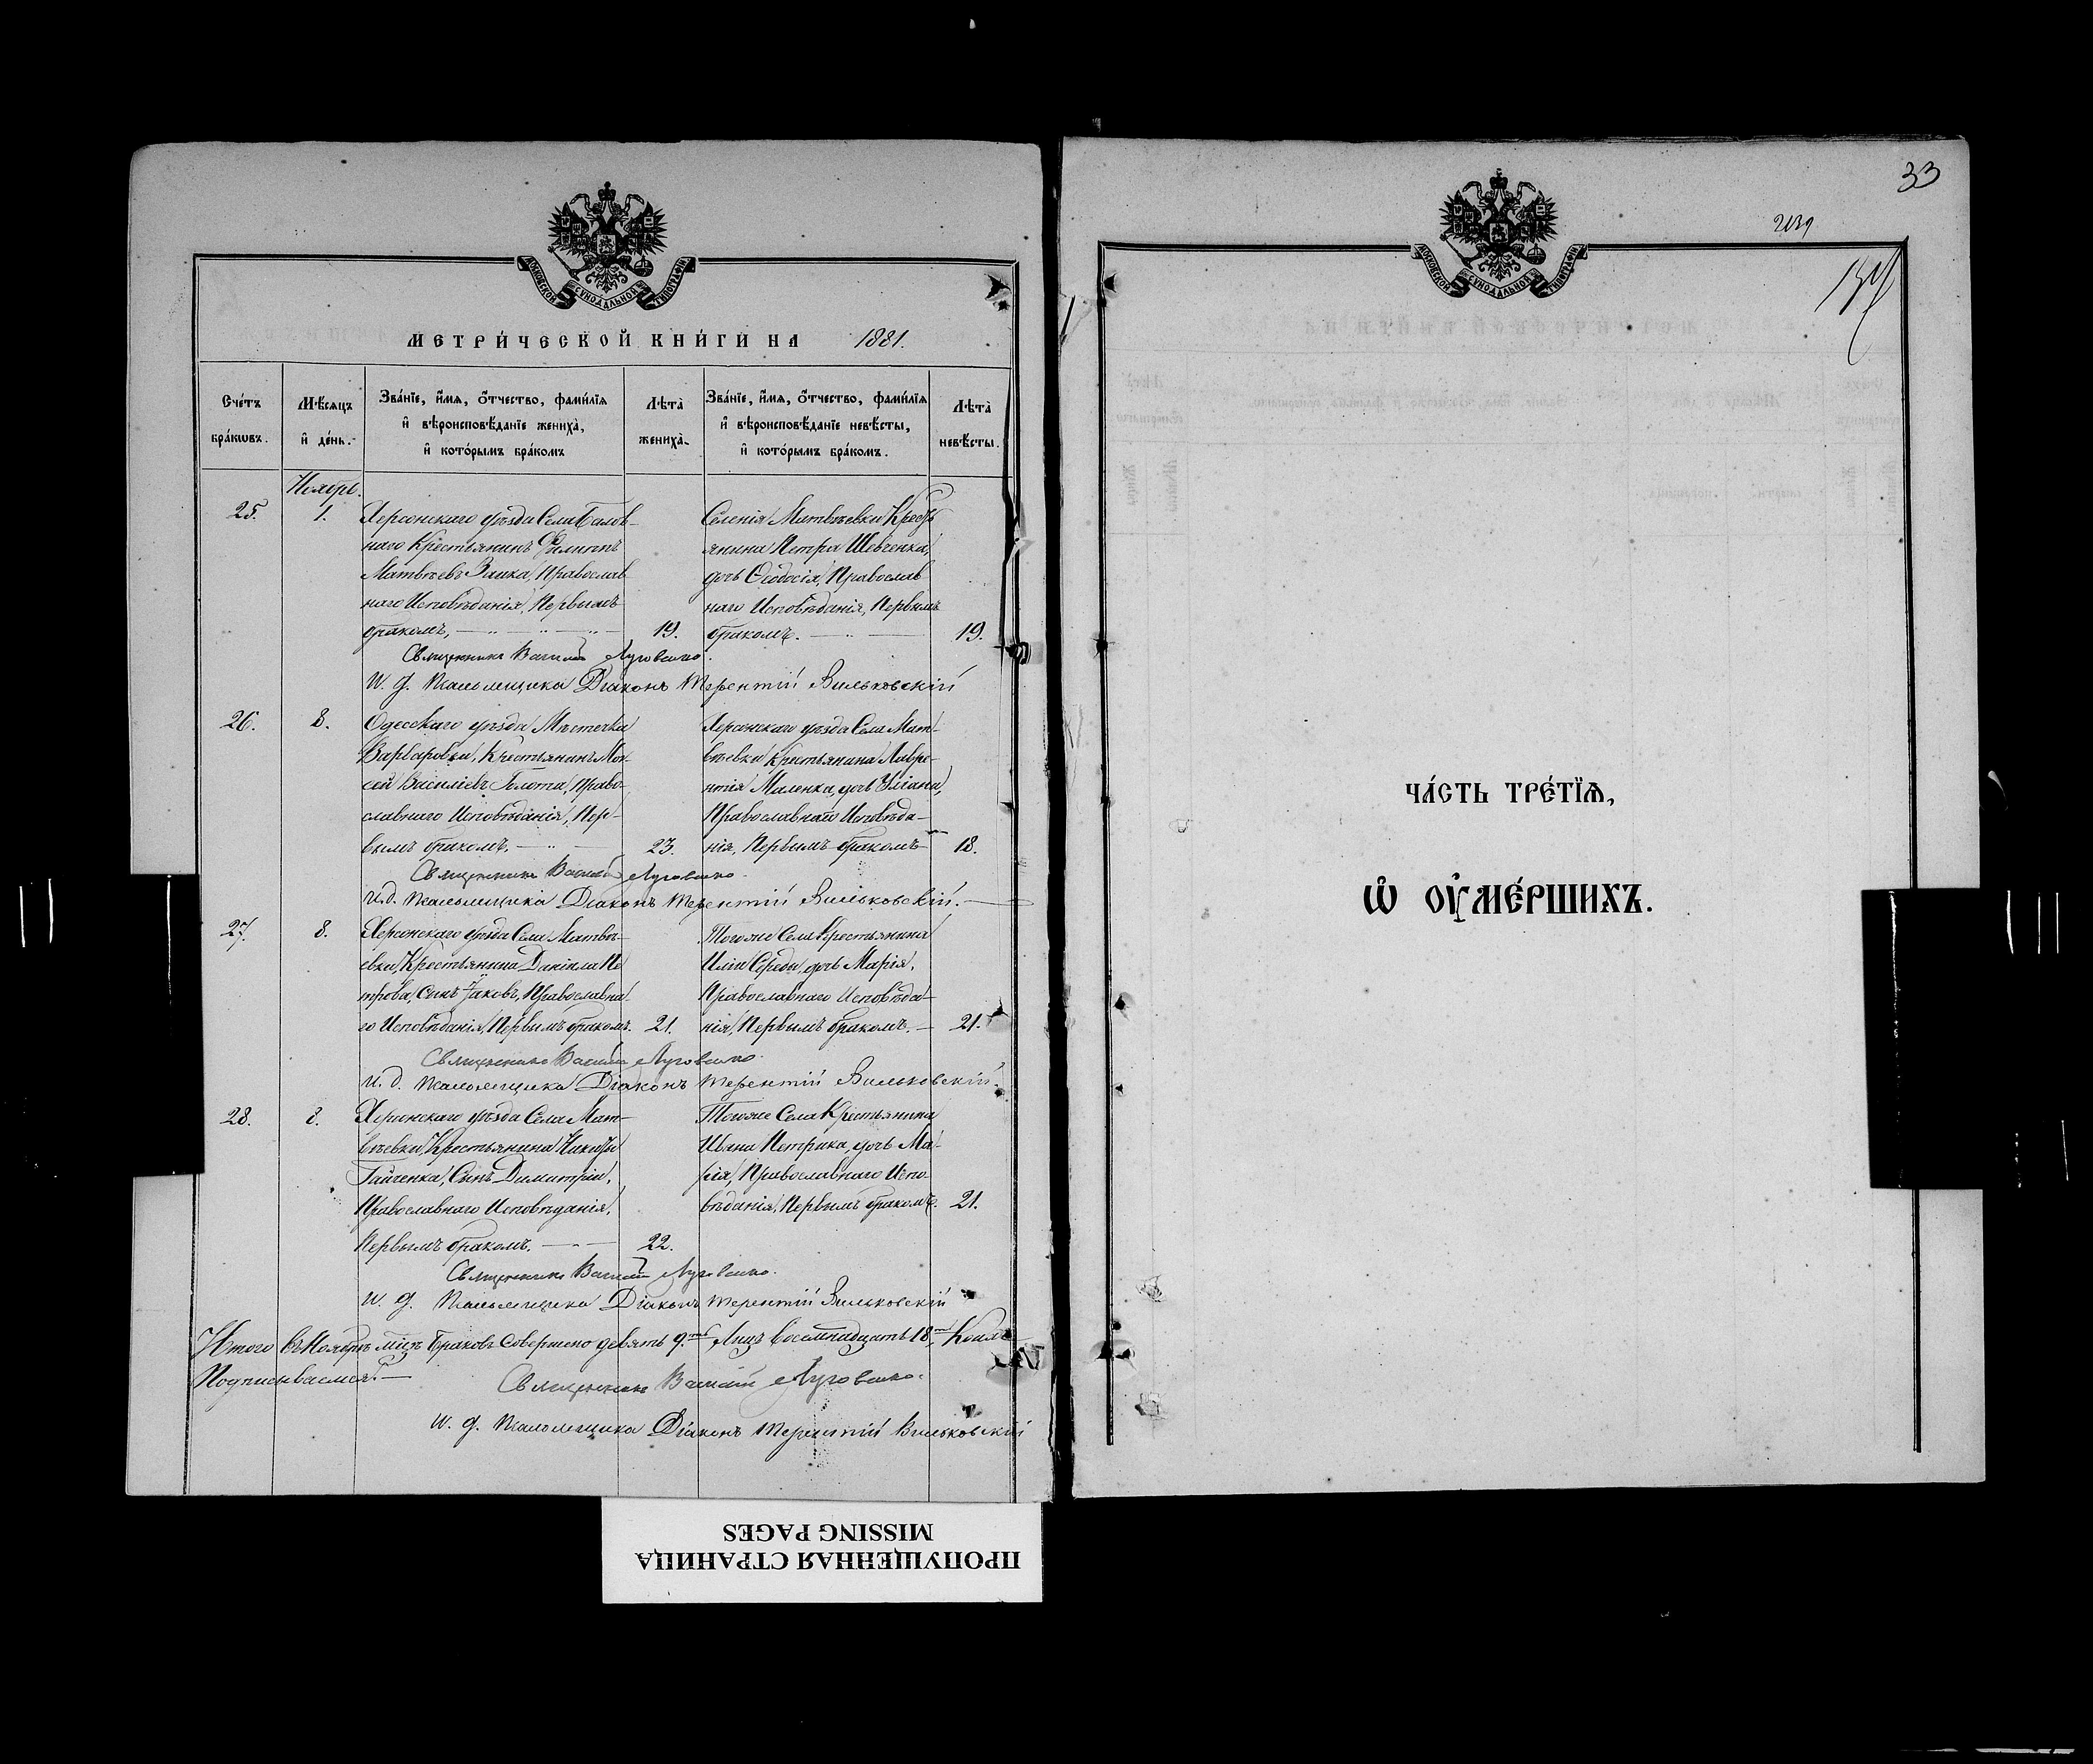 МОСКОВСКОЙ СѴНОДАЛЬНОЙ ТИПОГРАФІИ
МЕТРИ́ЧЕСКОЙ КНИ́ГИ НА 1881.
Сче́тъ бра́кѡвъ.
Мѣ́сяцъ и҆ де́нь.
Зва́нїе, и҆́мя, ѻ҆́тчество, фами́лїя и҆ вѣроисповѣ́данїе жениха̀, и҆ кото́рымъ бра́комъ
Лѣта̀ жениха̀.
Зва́нїе, и҆́мя, ѻ҆́тчество, фами́лїя и҆ вѣроисповѣ́данїе невѣ́сты, и҆ кото́рымъ бра́комъ.
Лѣта̀ невѣ́сты.
Ноябрь.
25.
1.
Херсонскаго уѣзда Села Балов-
наго Крестьянинъ Филиппъ
Матвѣевъ Заика, Православ
наго Исповѣданія, Первымъ
бракомъ,
19.
Селенія Матвѣевки Кресть
янина Петра Шевченка,
дочь Ѳеодосія, Православ
наго Исповѣданія, Первымъ
бракомъ.
19.
Священникъ Василій
и. д. Псаломщика Діаконъ Терентій Вильковскій
26.
8.
Одесскаго уѣзда Мѣстечка
Варваровки, Крестьянинъ Мои-
сей Василіевъ Голота, Право-
славнаго Исповѣданія, Пер-
вымъ бракомъ.
23.
Херсонскаго уѣзда Села Мат-
вѣевки крестьянина Лавре-
нтія Маленка, дочь Уліана,
Православнаго Исповѣда-
нія, Первымъ бракомъ
18.
Священникъ Василій
и. д. Псаломщика Діаконъ Терентій Вильковскій.
27.
8.
Херсонскаго уѣзда Села Матвѣ-
евки, Крестьянина Даніила Пе
трова, Сынъ Іаковъ, Православна
го Исповѣданія, Первымъ бракомъ.
21.
Тогоже Села Крестьянина
Иліи Середы, дочь Марія,
Православнаго Исповѣда-
нія, Первымъ бракомъ.
21.
Священникъ Василій
и. д. Псаломщика Діаконъ Терентій Вильковскій.
28.
8.
Херсонскаго уѣзда Села Мат-
вѣевки, Крестьянина
Гайченка, Сынъ Димитрій,
Православнаго Исповѣданія,
Первымъ бракомъ.
22.
Тогоже Села Крестьянина
Ивана Петрика, дочь Ма-
рія, Православнаго Испо-
вѣданія, Первымъ бракомъ.
21.
Священникъ Василій
и. д. Псаломщика Діаконъ Терентій Вильковскій
Итого въ Ноябрѣ мцѣ браковъ Совершено девять 9. Лицъ восемнадцать 18,
Подписываемся.
Священникъ Василій
и. д. Псаломщика Діаконъ Терентій Вильковскій
ПРОПУЩЕННАЯ СТРАНИЦА
MISSING PAGES
33
МОСКОВСКОЙ СѴНОДАЛЬНОЙ ТИПОГРАФІИ
ЧА́СТЬ ТРЕ́ТЇѦ,
Ѡ҆ ОУ҆МЕ́РШИХЪ.